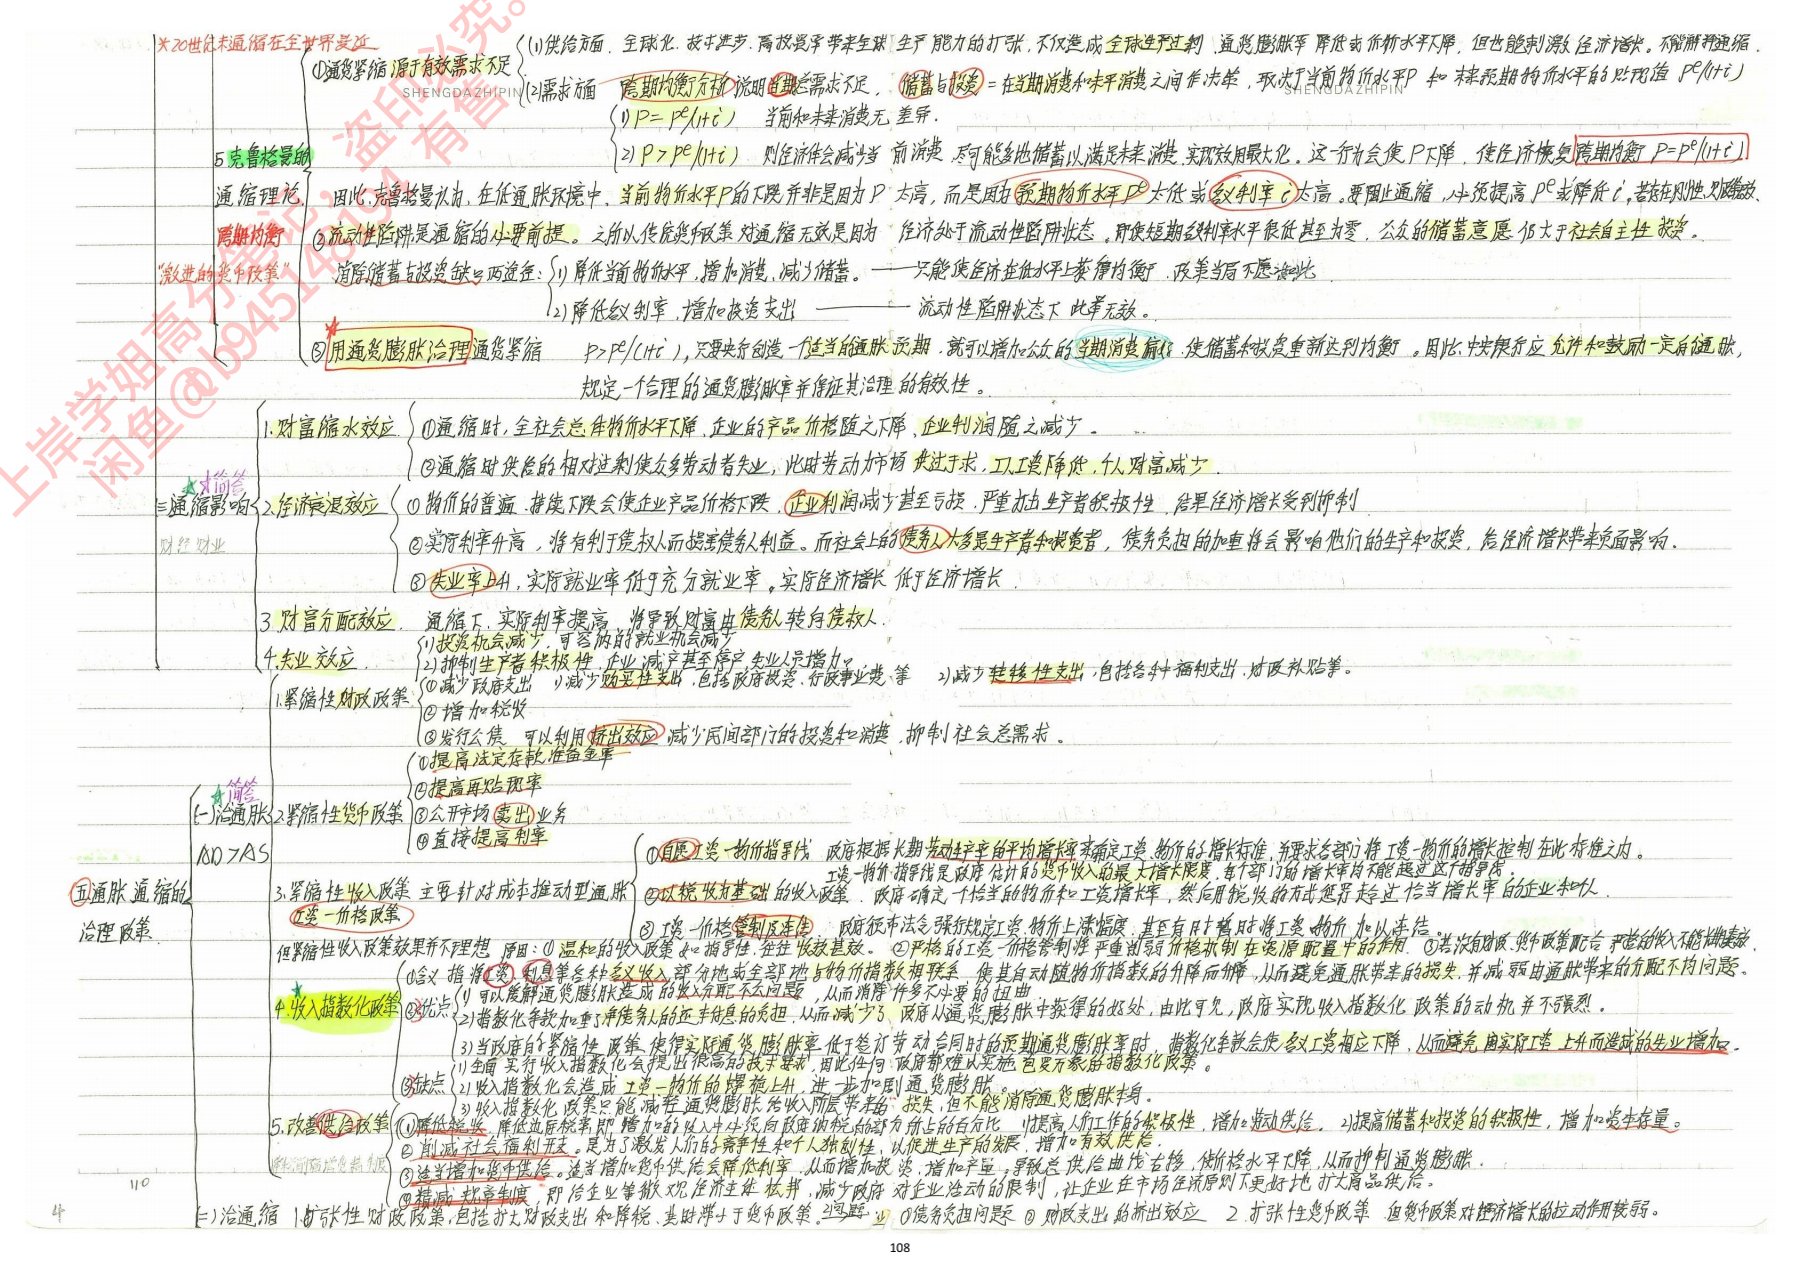 *20世纪末通缩在全世界蔓延
①通货紧缩源于有效需求不足
(1)供给方面 全球化、技术进步、高投资率带来全球生产能力的扩张,不仅造成全球生产过剩、通货膨胀率降低或价格水平下降,但也能刺激经济增长。不能解释通缩.
(2)需求方面 跨期均衡分析说明当期总需求不足, 储蓄与投资=在当期消费和未来消费之间作决策,取决于当前物价水平P 和 未来预期物价水平的贴现值 Pᵉ/(1+i)
SHENGDAZHIPIN
SHENGDAZHIPIN
1) P = Pᵉ/(1+i) 当前和未来消费无差异.
5.克鲁格曼的
2) P > Pᵉ/(1+i) 则经济体会减少当前消费,尽可能多地储蓄以满足未来消费,实现效用最大化。这一行为会使P下降,使经济恢复跨期均衡 P=Pᵉ/(1+i)
通缩理论
因此,克鲁格曼认为,在低通胀环境中,当前物价水平P的下跌并非是因为P太高,而是因为预期物价水平Pᵉ太低或名义利率i太高。要阻止通缩,必须提高Pᵉ或降低i。
跨期均衡
②流动性陷阱是通缩的必要前提。之所以传统货币政策对通缩无效是因为经济处于流动性陷阱状态。即使短期名义利率水平很低甚至为零,公众的储蓄意愿仍大于社会自主性投资。
"激进的货币政策"
消除储蓄与投资缺口两途径:
1)降低当前物价水平,增加消费,减少储蓄。——只能使经济在低水平上获得均衡,政策当局不愿如此
2)降低名义利率,增加投资支出 —— 流动性陷阱状态下此举无效。
③用通货膨胀治理通货紧缩 P>Pᵉ/(1+i),只要央行创造一个适当的通胀预期,就可以增加公众的当期消费偏好,使储蓄和投资重新达到均衡。因此,中央银行应允许和鼓励一定的通胀,
规定一个合理的通货膨胀率并保证其治理的有效性。
1.财富缩水效应
①通缩时,全社会总体物价水平下降,企业的产品价格随之下降,企业利润随之减少。
②通缩时供给的相对过剩使众多劳动者失业,此时劳动力市场供过于求,工人工资降低,个人财富减少.
☆简答
三通缩影响
财经财业
2.经济衰退效应
①物价的普遍、持续下跌会使企业产品价格下跌,企业利润减少甚至亏损,严重打击生产者积极性,结果经济增长受到抑制
②实际利率升高,将有利于债权人而损害债务人利益。而社会上的债务人大多是生产者和投资者,债务负担的加重将会影响他们的生产和投资,给经济增长带来负面影响.
③失业率上升,实际就业率低于充分就业率。实际经济增长低于经济增长
3.财富分配效应. 通缩下,实际利率提高,将导致财富由债务人转向债权人.
4.失业效应.
1)投资机会减少,可容纳的就业机会减少
2)抑制生产者积极性,企业减产甚至停产,失业人员增加。
1.紧缩性财政政策
①减少政府支出 1)减少购买性支出,包括政府投资、行政事业费等 2)减少转移性支出,包括各种福利支出,财政补贴等。
②增加税收
③发行公债 可以利用挤出效应,减少民间部门的投资和消费,抑制社会总需求。
☆简答
(一)治通胀
AD>AS
2.紧缩性货币政策
①提高法定存款准备金率
②提高再贴现率
③公开市场卖出业务
④直接提高利率
五通胀通缩的
治理政策
3.紧缩性收入政策 主要针对成本推动型通胀
工资—价格政策
①自愿工资—物价指导线 政府根据长期劳动生产率的平均增长率来确定工资、物价的增长标准,并要求各部门将工资—物价的增长控制在此标准之内。
工资—物价指导线是政府估计的货币收入的最大增长限度,每个部门的增长率均不能超过这个指导线
②以税收为基础的收入政策. 政府确定一个恰当的物价和工资增长率,然后用税收的方式惩罚超过恰当增长率的企业和个人.
③工资—价格管制及冻结 政府颁布法令强行规定工资、物价上涨幅度,甚至有时暂时将工资、物价加以冻结。
但紧缩性收入政策效果并不理想 原因:①温和的收入政策如指导性,往往收效甚微。②严格的工资—价格管制将严重削弱价格机制在资源配置中的作用. ③若没有财政、货币政策配合,严格的收入
4.收入指数化政策
①含义 指将工资、利息等各种名义收入部分地或全部地与物价指数相联系,使其自动随物价指数的升降而升降,从而避免通胀带来的损失,并减弱由通胀带来的分配不均问题。
②优点
1)可以缓解通货膨胀造成的收入分配不公问题,从而消除许多不必要的扭曲
2)指数化条款加重了净债务人的还本付息的负担,从而减少了政府从通货膨胀中获得的好处,由此可见,政府实现收入指数化政策的动机并不强烈。
3)当政府的紧缩性政策使得实际通货膨胀率低于签订劳动合同时的预期通货膨胀率时,指数化条款会使名义工资相应下降,从而避免因实际工资上升而造成的失业增加。
③缺点
1)全面实行收入指数化会提出很高的技术要求,因此任何政府都难以实施包罗万象的指数化政策。
2)收入指数化会造成工资—物价的螺旋上升,进一步加剧通货膨胀。
3)收入指数化政策只能减轻通货膨胀给收入阶层带来的损失,但不能消除通货膨胀本身.
5.改善供给政策
①降低税收 降低边际税率,即增加的收入中必须向政府纳税的部分所占的百分比 1)提高人们工作的积极性,增加劳动供给. 2)提高储蓄和投资的积极性,增加资本存量。
②削减社会福利开支。是为了激发人们的竞争性和个人独创性,以促进生产的发展,增加有效供给.
③适当增加货币供给。适当增加货币供给会降低利率,从而增加投资,增加产量。导致总供给曲线右移,使价格水平下降,从而抑制通货膨胀.
④精减规章制度,即给企业等微观经济主体松绑,减少政府对企业活动的限制,让企业在市场经济原则下更好地扩大商品供给。
110
(二)治通缩 1.扩张性财政政策,包括扩大财政支出和降税,其时滞小于货币政策。问题:①债务负担问题 ②财政支出的挤出效应 2.扩张性货币政策 但货币政策对经济增长的拉动作用较弱。
108
上岸学姐高分笔记,盗印必究。
闲鱼@b945148194 有售